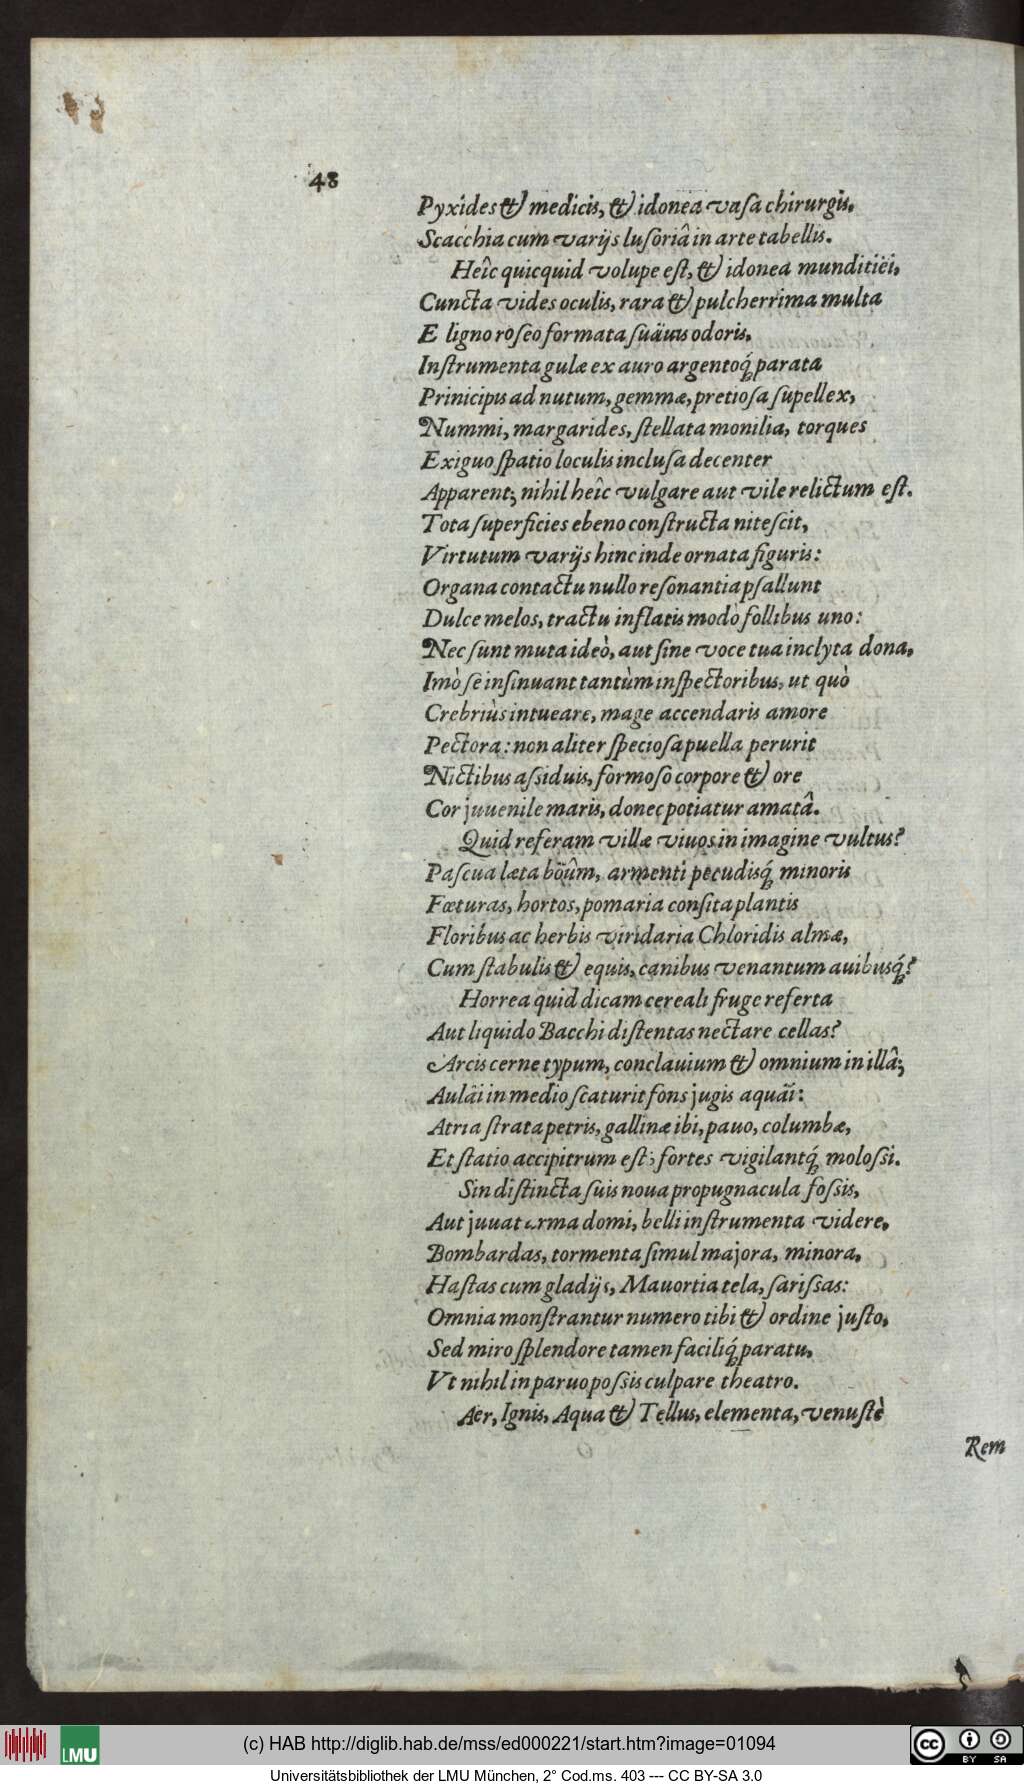 48
Pyxides & medicis, & idonea vaſa chirurgis.
Scacchia cum varijs luſoriâ in arte tabellis.
Heîc quicquid volupe eſt, & idonea munditiëi,
Cuncta vides oculis, rara & pulcherrima multa
E ligno roſeo formata ſuäuis odoris.
Inſtrumenta gulæ ex auro argentoq́; parata
Prinicipis ad nutum, gemmæ, pretioſa ſupellex,
Nummi, margarides, ſtellata monilia, torques
Exiguo ſpatio loculis incluſa decenter
Apparent; nihil heîc vulgare aut vile relictum eſt.
Tota ſuperficies ebeno conſtructa niteſcit,
Virtutum varijs hinc inde ornata figuris:
Organa contactu nullo reſonantia pſallunt
Dulce melos, tractu inflatis modò follibus uno:
Nec ſunt muta ideò, aut ſine voce tua inclyta dona,
Imò ſe inſinuant tantùm inſpectoribus, ut quò
Crebriùs intueare, mage accendaris amore
Pectora: non aliter ſpecioſa puella perurit
Nictibus aſsiduis, formoſo corpore & ore
Cor juuenile maris, donec potiatur amatâ.
Quid referam villæ viuos in imagine vultus?
Paſcua læta boûm, armenti pecudisq́; minoris
Fœturas, hortos, pomaria conſita plantis
Floribus ac herbis viridaria Chloridis almæ,
Cum ſtabulis & equis, canibus venantum auibusq́;?
Horrea quid dicam cereali fruge referta
Aut liquido Bacchi diſtentas nectare cellas?
Arcis cerne typum, conclauium & omnium in illâ;
Aulâi in medio ſcaturit fons jugis aquäi:
Atria ſtrata petris, gallinæ ibi, pauo, columbæ,
Et ſtatio accipitrum eſt; fortes vigilantq́; moloſsi.
Sin diſtincta ſuis noua propugnacula foſsis,
Aut juuat arma domi, belli inſtrumenta videre,
Bombardas, tormenta ſimul majora, minora,
Haſtas cum gladijs, Mauortia tela, ſariſsas:
Omnia monſtrantur numero tibi & ordine juſto,
Sed miro ſplendore tamen faciliq́; paratu,
Vt nihil in paruo poſsis culpare theatro.
Aer, Ignis, Aqua & Tellus, elementa, venuſtè
Rem
(c) HAB http://diglib.hab.de/mss/ed000221/start.htm?image=01094
LMU
cc BY SA
Universitätsbibliothek der LMU München, 2° Cod.ms. 403 --- CC BY-SA 3.0